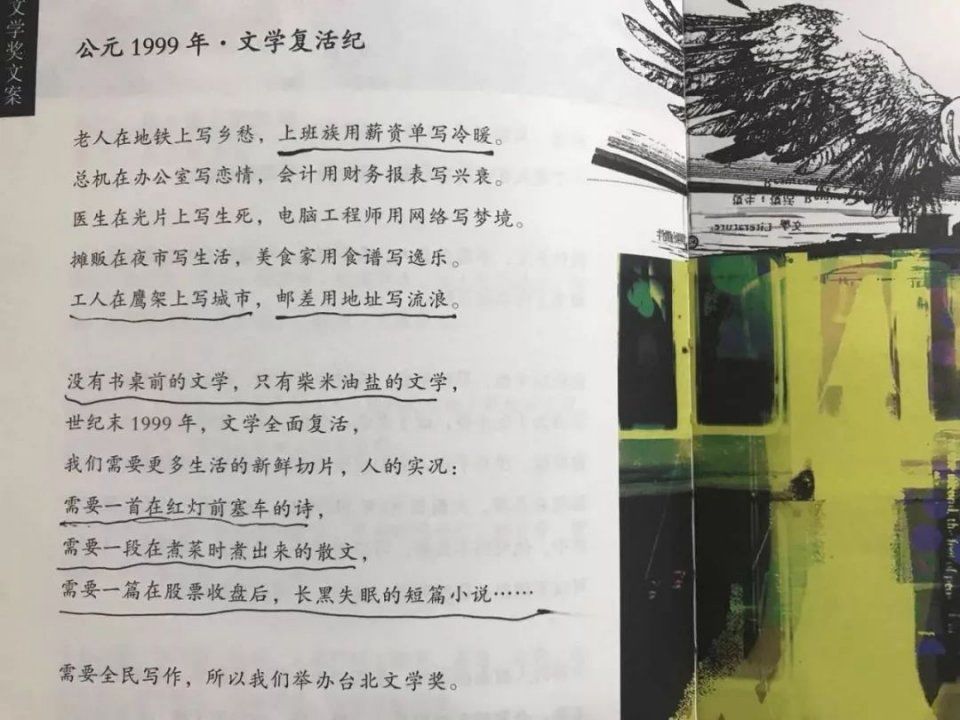 文学奖文案
公元 1999 年·文学复活纪
老人在地铁上写乡愁，上班族用薪资单写冷暖。
总机在办公室写恋情，会计用财务报表写兴衰。
医生在光片上写生死，电脑工程师用网络写梦境。
摊贩在夜市写生活，美食家用食谱写逸乐。
工人在鹰架上写城市，邮差用地址写流浪。
没有书桌前的文学，只有柴米油盐的文学，
世纪末 1999 年，文学全面复活，
我们需要更多生活的新鲜切片，人的实况：
需要一首在红灯前塞车的诗，
需要一段在煮菜时煮出来的散文，
需要一篇在股票收盘后，长黑失眠的短篇小说……
需要全民写作，所以我们举办台北文学奖。
文學 Literature